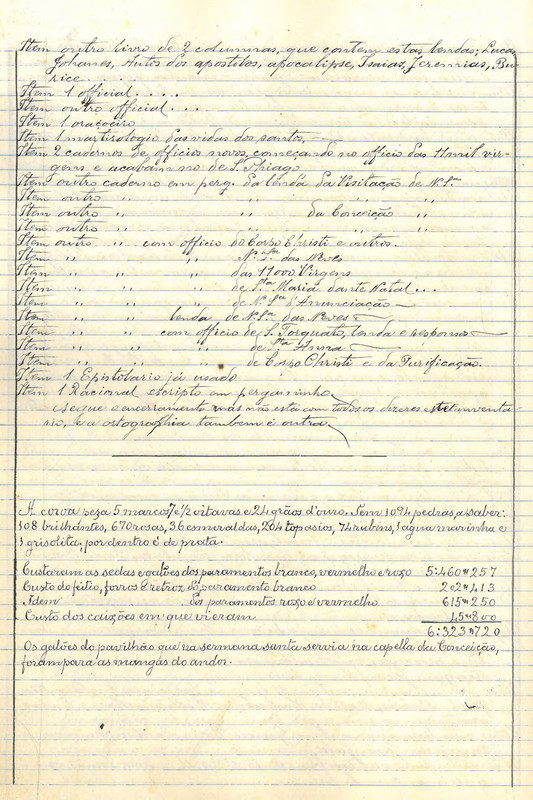 Item outro livro de 2 columnas, que contem estas lendas; Lucas,
Johanes, Autos dos apostolos, apocalipse, Isaias, Jeremias, Bu-
rice. . . . .
Item 1 official. . . . .
Item outro official. . . .
Item 1 oraçoeiro
Item 1 martirologio das vidas dos santos,
Item 2 cadernos de officios novos, começando no officio das 11 mil vir-
gens e acabam no de S. Thiago
Item outro caderno em perg. da lenda da Visitação de N. Sra
Item outro " " " "
Item outro " da Conceição "
Item outro " " "
Item outro " com officio do Corpo Christi e outros.
Item " " " Na. Sra. das Neves
Item " " " das 11000 Virgens
Item " " " de Sta Maria dante Natal . . .
Item " " " de N. Sra d'Anunciação
Item " " lenda de N. Sra das Neves
Item " " com officio de S. Torquato, lenda e responso
Item " " " de Sta Anna
Item " " " de Corpo Christi e da Purificação.
Item 1 Epistolario já usado
Item 1 Racional escripto em pergaminho
Segue o encerramento mas não está com todos os dizeres este inventa-
rio, e a ortographia tambem é outra
A coroa peza 5 marcos, 7 e 1/2 oitavas e 24 grãos d'ouro. Tem 1094 pedras, a saber:
108 brilhantes, 670 rosas, 36 esmeraldas, 204 topasios, 74 rubins, 1 agua marinha e
1 grisolita; por dentro é de prata.
Custaram as sedas e galões dos paramentos branco, vermelho e roxo 5:460$257
Custo do feitio, forros e retroz do paramento branco 202$413
Idem dos paramentos roxo e vermelho 615$250
Custo dos caixões em que vieram 45$800
6:323$720
Os galões do pavilhão que na semana santa servia na capella da Conceição,
foram para as mangas do andor.